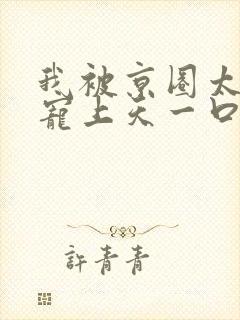 我被京圈太
宠上天一口
許青青